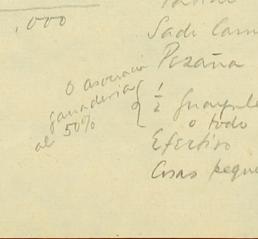 ,000
Sadi Carn
Pezaña
o asociacion
ganaderia
al 50%
½ Guayule
o todo
Efectivo
Cosas peque